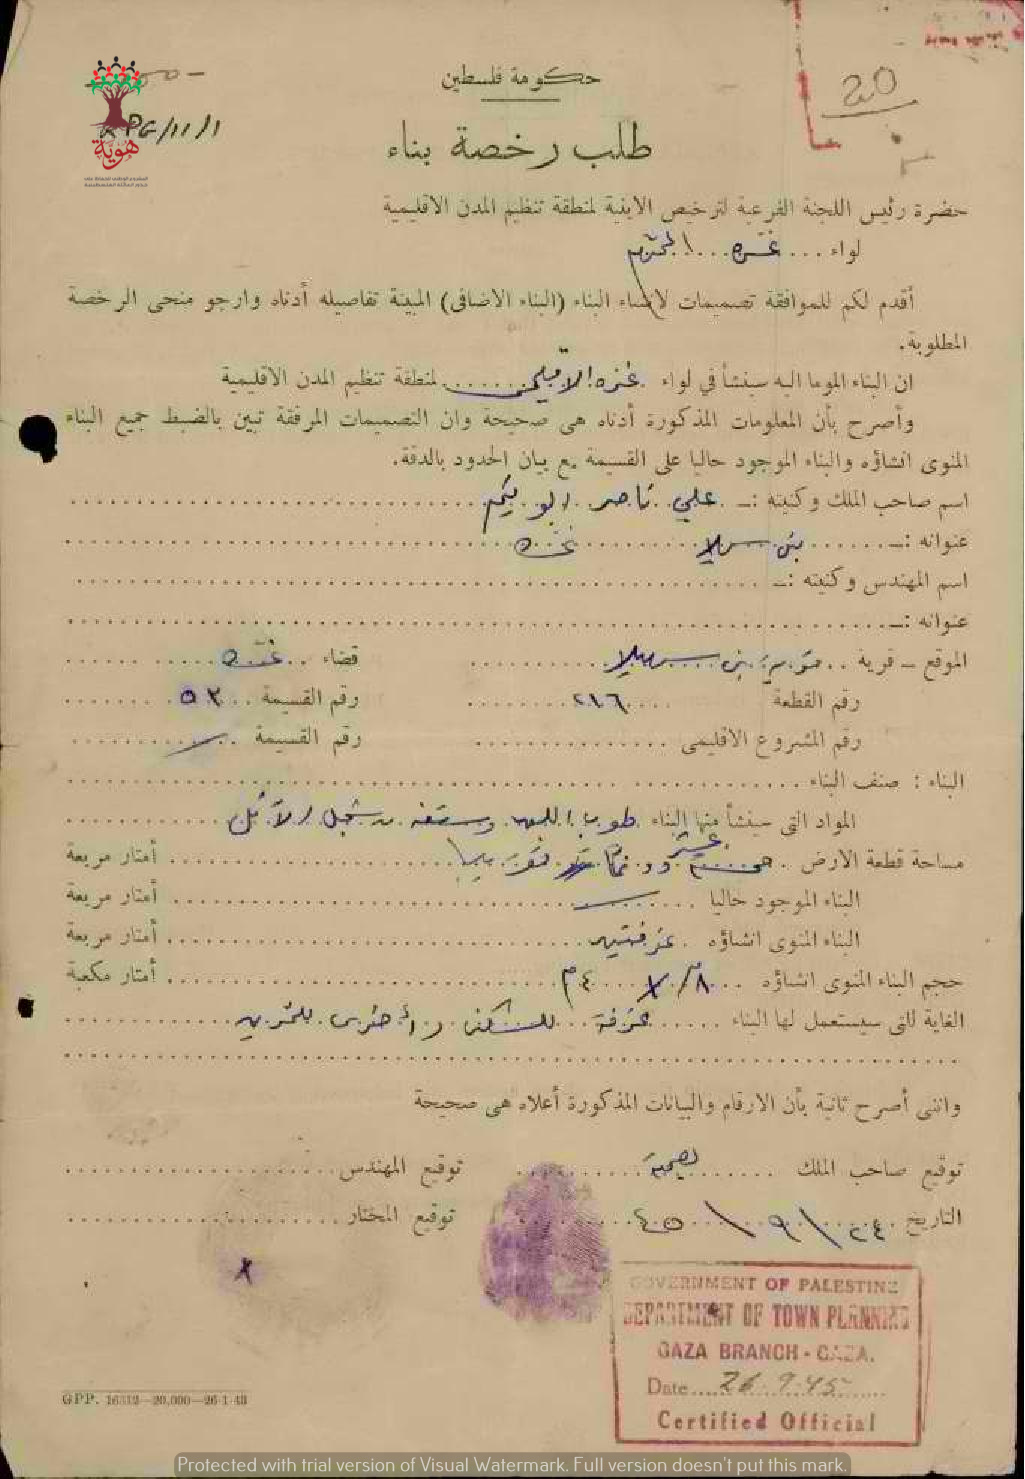 حكومة فلسطين
20
RPG/11/1
هوية
طلب رخصة بناء
حضرة رئيس اللجنة الفرعية لترخيص الابنية لمنطقة تنظيم المدن الاقليمية
لواء ... غزه ... المحترم
أقدم لكم للموافقة تصميمات لانشاء البناء (البناء الاضافى) المبينة تفاصيله أدناه وارجو منحى الرخصة
المطلوبة.
ان البناء الموما اليه سينشأ في لواء . غزه الاقليمى ...... لمنطقة تنظيم المدن الاقليمية
وأصرح بأن المعلومات المذكورة أدناه هى صحيحة وان التصميمات المرفقة تبين بالضبط جميع البناء
المنوى انشاؤه والبناء الموجود حاليا على القسيمة مع بيان الحدود بالدقة.
اسم صاحب الملك وكنيته :ــ علي ناصر ابو
عنوانه :ــ بني سهيلا غزه
اسم المهندس وكنيته :ــ
عنوانه :ــ
الموقع ــ قرية .. بني سهيلا قضاء .. غزه
رقم القطعة ٢١٦ رقم القسيمة ٥٣
رقم المشروع الاقليمى رقم القسيمة
البناء : صنف البناء
المواد التى سينشأ منها البناء طوب اللبن
مساحة قطعة الارض تقريبا أمتار مربعة
البناء الموجود حاليا أمتار مربعة
البناء المنوى انشاؤه غرفتين أمتار مربعة
حجم البناء المنوى انشاؤه ٨م / ٤م أمتار مكعبة
الغاية التى سيستعمل لها البناء غرفة للسكن
واننى أصرح ثانية بأن الارقام والبيانات المذكورة أعلاه هى صحيحة
توقيع صاحب الملك بصمة توقيع المهندس
التاريخ ٢٤ / ٩ / ٤٥ توقيع المختار
GOVERNMENT OF PALESTINE
DEPARTMENT OF TOWN PLANNING
GAZA BRANCH - GAZA.
Date 26.9.45
Certified Official
GPP. 16312—20,000—26-1-43
Protected with trial version of Visual Watermark. Full version doesn't put this mark.